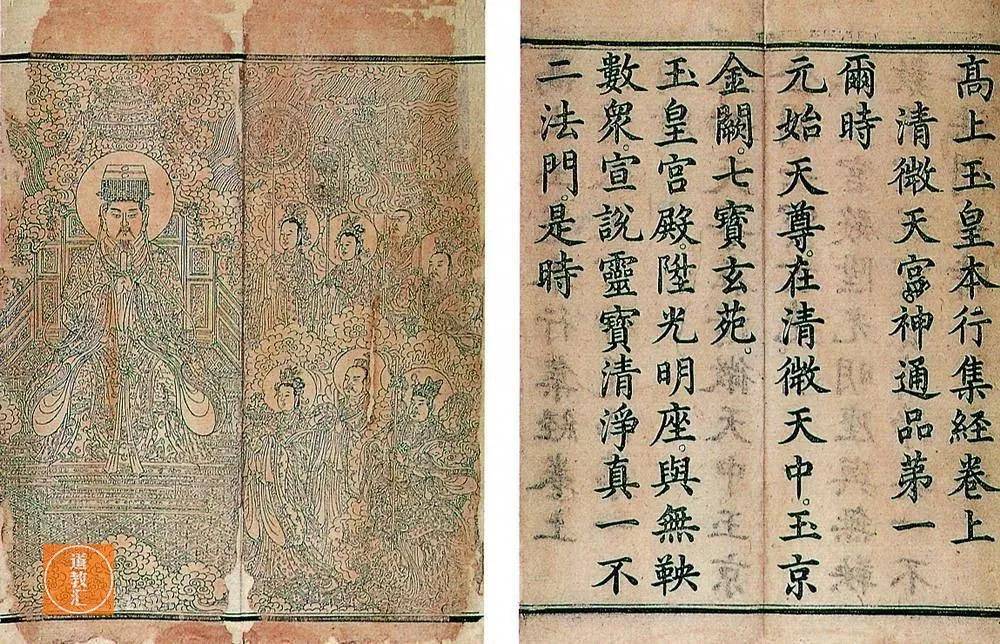 高上玉皇本行集經卷上
清微天宮神通品第一
爾時
元始天尊。在清微天中。玉京
金闕。七寶玄苑。
玉皇宮殿。陞光明座。與無鞅
數衆。宣說靈寶清淨真一不
二法門。是時
道教汇